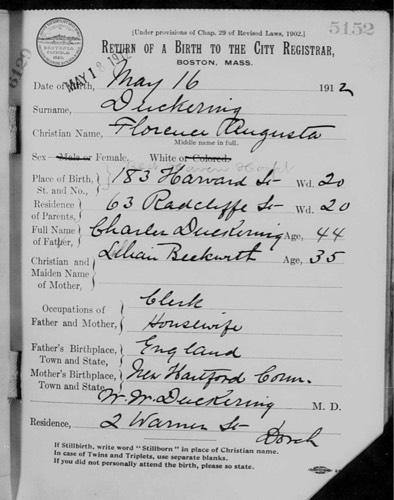 [Under provisions of Chap. 29 of Revised Laws, 1902.] 5152
RETURN OF A BIRTH TO THE CITY REGISTRAR,
BOSTON, MASS.
MAY 18 1912
Date of Birth, May 16 1912
Surname, Duckering
Christian Name, Florence Augusta
Middle name in full.
Sex Male or Female, White or Colored.
Place of Birth, St. and No., 183 Harvard St Wd. 20
Residence of Parents, 63 Radcliffe St Wd. 20
Full Name of Father, Charles Duckering Age, 44
Christian and Maiden Name of Mother, Lilian Beckwith Age, 35
Occupations of Father and Mother, Clerk
Housewife
Father's Birthplace, Town and State, England
Mother's Birthplace, Town and State, New Hartford Conn.
W. W. Duckering M. D.
Residence, 2 Warner St Dorch
If Stillbirth, write word "Stillborn" in place of Christian name.
In case of Twins and Triplets, use separate blanks.
If you did not personally attend the birth, please so state.